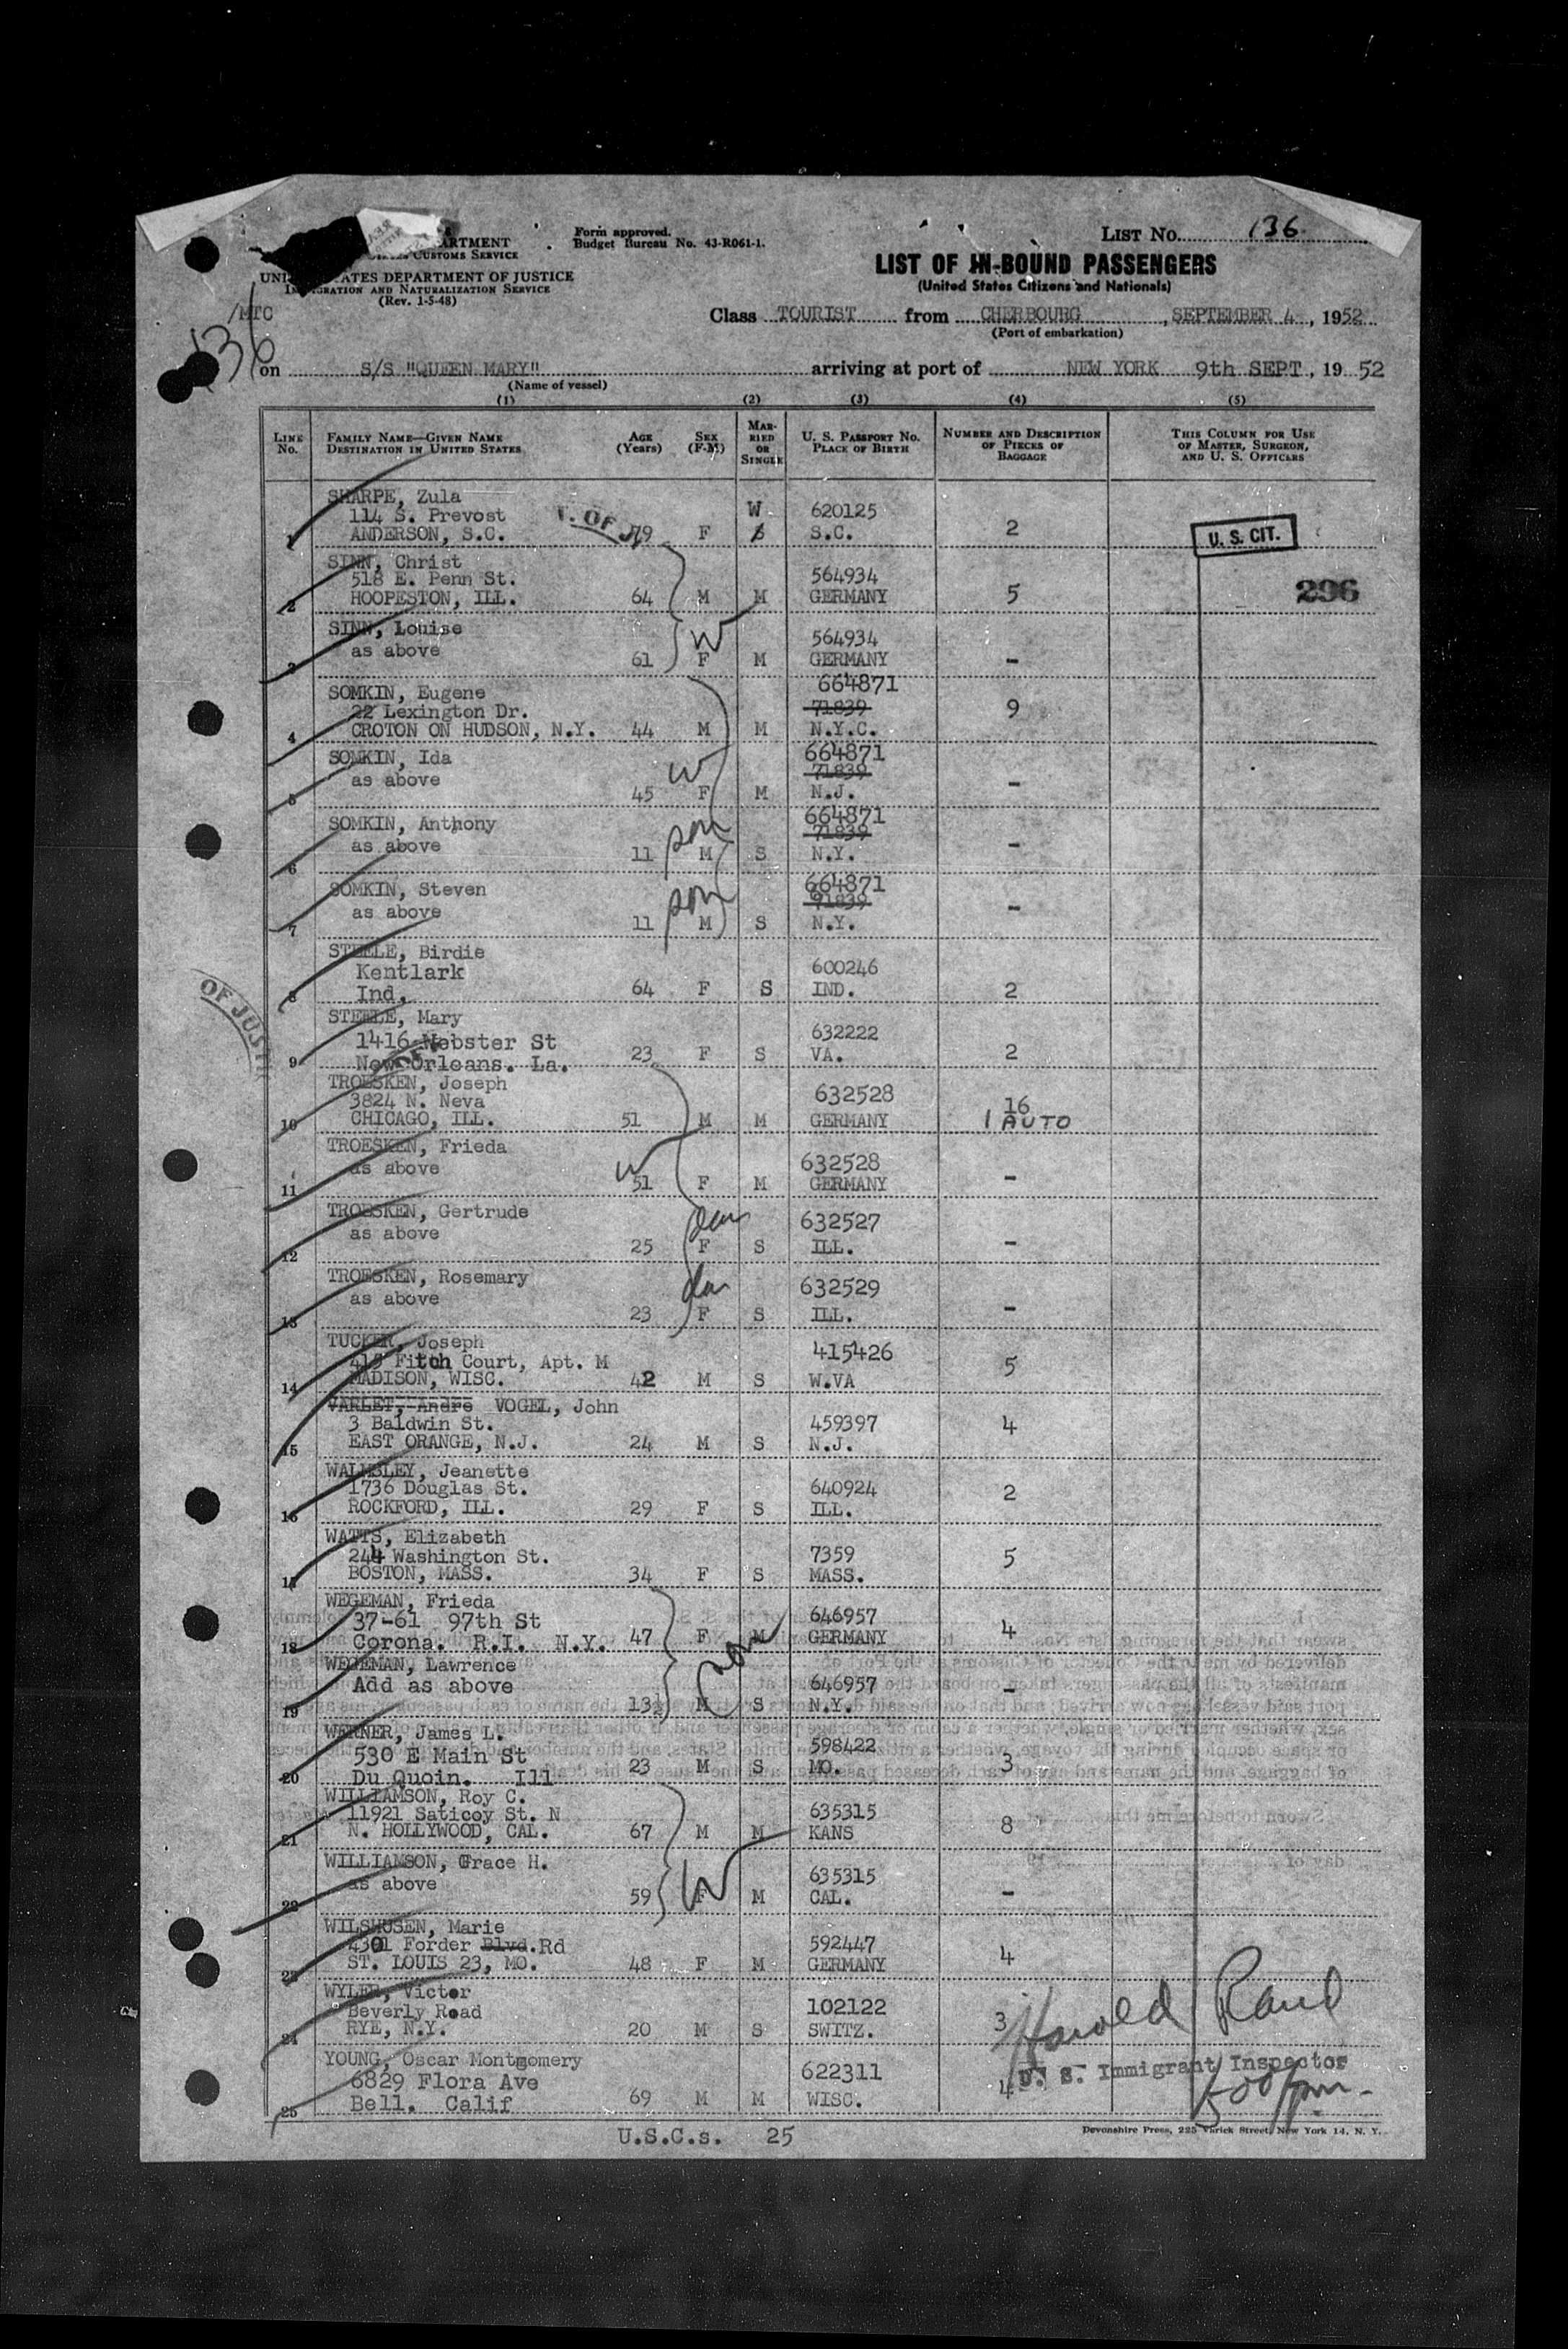 ARTMENT
CUSTOMS SERVICE
UNI TATES DEPARTMENT OF JUSTICE
IMMIGRATION AND NATURALIZATION SERVICE
(Rev. 1-5-48)
Form approved.
Budget Bureau No. 43-R061-1.
LIST NO. 136
LIST OF IN-BOUND PASSENGERS
(United States Citizens and Nationals)
/MTC
136
Class TOURIST from CHERBOURG, SEPTEMBER 4, 1952
(Port of embarkation)
on S/S "QUEEN MARY" arriving at port of NEW YORK 9th SEPT, 1952
(Name of vessel)
(1) (2) (3) (4) (5)
LINE No.
FAMILY NAME—GIVEN NAME
DESTINATION IN UNITED STATES
AGE (Years)
SEX (F-M)
MARRIED OR SINGLE
U. S. PASSPORT NO.
PLACE OF BIRTH
NUMBER AND DESCRIPTION OF PIECES OF BAGGAGE
THIS COLUMN FOR USE OF MASTER, SURGEON, AND U. S. OFFICERS
SHARPE, Zula W 620125
114 S. Prevost T. OF J
1 ANDERSON, S.C. 79 F S S.C. 2 U. S. CIT.
SINN, Christ
518 E. Penn St. 564934
2 HOOPESTON, ILL. 64 M M GERMANY 5 296
SINN, Louise 564934
as above W
3 61 F M GERMANY -
SOMKIN, Eugene 664871
22 Lexington Dr. 71839
4 CROTON ON HUDSON, N.Y. 44 M M N.Y.C. 9
SOMKIN, Ida 664871
as above W 71839
5 45 F M N.J. -
SOMKIN, Anthony 664871
as above son 71839
6 11 M S N.Y. -
SOMKIN, Steven 664871
as above son 71839
7 11 M S N.Y. -
STEELE, Birdie
Kentlark 600246
8 Ind. 64 F S IND. 2
OF JUSTI
STEELE, Mary
1416 Webster St 632222
9 New Orleans. La. 23 F S VA. 2
TROESKEN, Joseph
3824 N. Neva 632528 16
10 CHICAGO, ILL. 51 M M GERMANY 1 AUTO
TROESKEN, Frieda
as above W 632528
11 51 F M GERMANY -
TROESKEN, Gertrude
as above dau 632527
12 25 F S ILL. -
TROESKEN, Rosemary
as above dau 632529
13 23 F S ILL. -
TUCKER, Joseph
415 Fitch Court, Apt. M 415426
14 MADISON, WISC. 42 M S W.VA 5
VARLET, Andre VOGEL, John
3 Baldwin St. 459397
15 EAST ORANGE, N.J. 24 M S N.J. 4
WALMSLEY, Jeanette
1736 Douglas St. 640924
16 ROCKFORD, ILL. 29 F S ILL. 2
WATTS, Elizabeth
244 Washington St. 7359
17 BOSTON, MASS. 34 F S MASS. 5
WEGEMAN, Frieda
37-61 97th St 646957
18 Corona. R.I. N.Y. 47 F M GERMANY 4
WEGEMAN, Lawrence son
Add as above 646957
19 13½ M S N.Y. -
WERNER, James L.
530 E Main St 598422
20 Du Quoin. Ill 23 M S MO. 3
WILLIAMSON, Roy C.
11921 Saticoy St. N 635315
21 N. HOLLYWOOD, CAL. 67 M M KANS 8
WILLIAMSON, Grace H.
as above W 635315
22 59 F M CAL. -
WILSHUSEN, Marie
4301 Forder Blvd. Rd 592447
23 ST. LOUIS 23, MO. 48 F M GERMANY 4
WYLER, Victor
Beverly Road 102122
24 RYE, N.Y. 20 M S SWITZ. 3
Harold Rand
U. S. Immigrant Inspector
YOUNG, Oscar Montgomery
6829 Flora Ave 622311
25 Bell. Calif 69 M M WISC. 4
500 pm.
U.S.C.s. 25
Devonshire Press, 225 Varick Street, New York 14, N. Y.